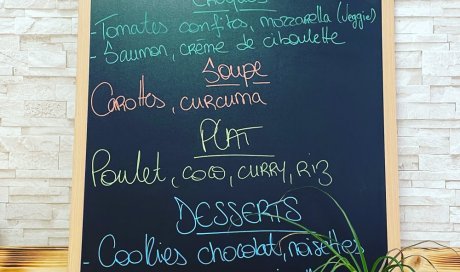 CROQUES
- Tomates confites, mozzarella (veggie)
- Saumon, crème de ciboulette
Soupe
Carottes, curcuma
PLAT
Poulet, coco, curry, riz
DESSERTS
- Cookies chocolat, noisettes